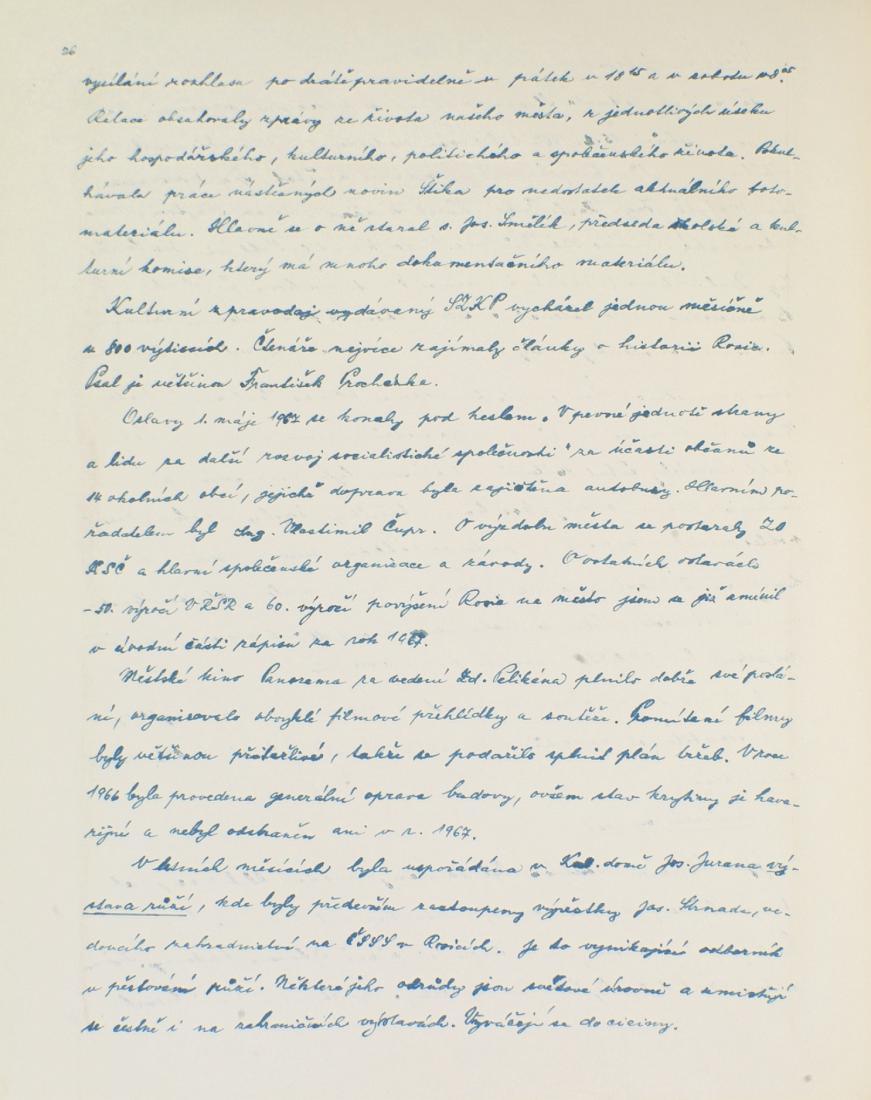 26
vysílání rozhlasu po drátě pravidelně v pátek v 18 15 a v sobotu v 8 05.
Relace obsahovaly zprávy ze života našeho města, z jednotlivých úseků
jeho hospodářského, kulturního, politického a společenského života. Pokul-
hávala práce nástěnných novin Štika pro nedostatek aktuálního foto-
materiálu. Hlavně se o ně staral s. Jos. Smělík, předseda školské a kul-
turní komise, který má mnoho dokumentačního materiálu.
Kulturní zpravodaj vydávaný SZKP vycházel jednou měsíčně
v 800 výtiscích. Čtenáře nejvíce zajímaly články o historii Rosic.
Psal je většinou František Procházka.
Oslavy 1. máje 1967 se konaly pod heslem „V pevné jednotě strany
a lidu za další rozvoj socialistické společnosti" za účasti občanů ze
14 okolních obcí, jejichž doprava byla zajištěna autobusy. Hlavním po-
řadatelem byl Ing. Vlastimil Čupr. O výzdobu města se postaraly ZO
KSČ a hlavní společenské organizace a závody. O ostatních oslavách
- 50. výročí VŘSR a 60. výročí povýšení Rosic na město jsem se již zmínil
v úvodní části zápisů za rok 1967.
Městské kino Panorama za vedení Zd. Pelikána plnilo dobře své poslá-
ní, organisovalo obvyklé filmové přehlídky a soutěže. Promítané filmy
byly většinou přitažlivé, takže se podařilo splnit plán tržeb. V roce
1966 byla provedena generální oprava budovy, ovšem stav krytiny je hava-
rijní a nebyl odstraněn ani v r. 1967.
V letních měsících byla uspořádána v Kul. domě Jos. Jurana vý-
stava růží, kde byly především zastoupeny výpěstky Jos. Strnada, ve-
doucího zahradnictví na ČSSS v Rosicích. Je to vynikající odborník
v pěstování růží. Některé jeho odrůdy jsou světové úrovně a umisťují
se čestně i na zahraničních výstavách. Vyvážejí se do ciziny.